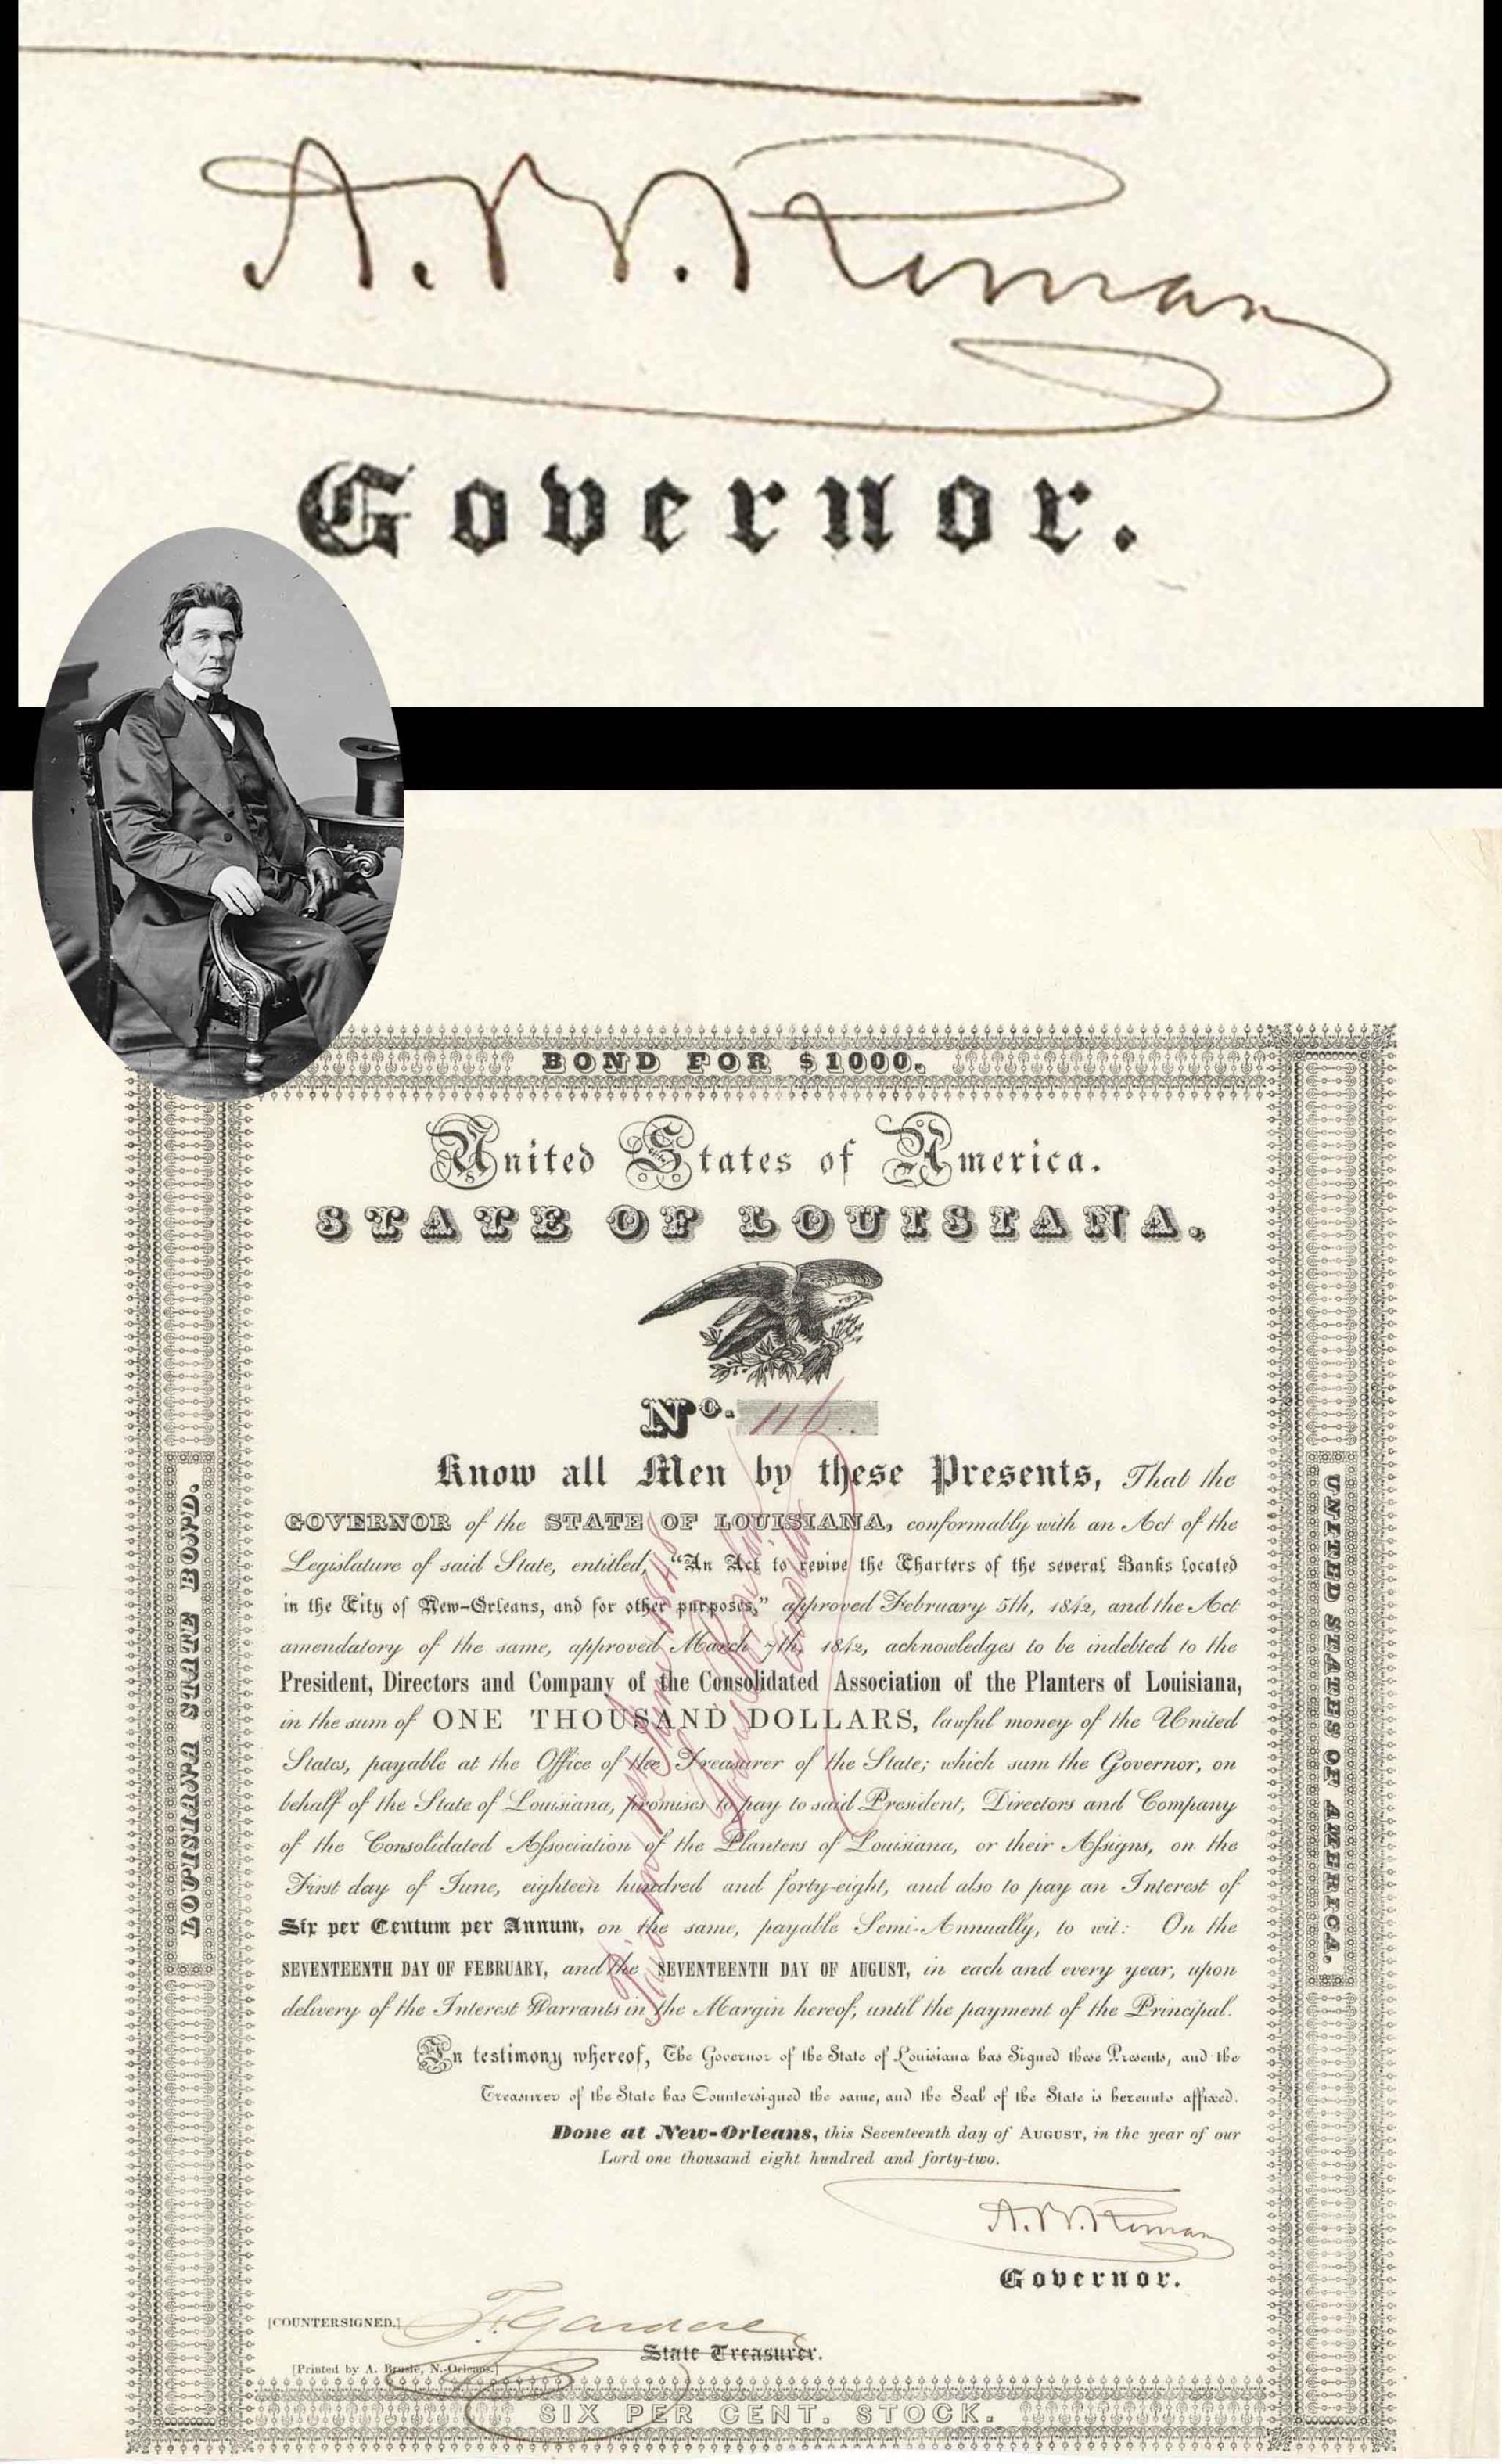 A. B. Roman
Governor.
BOND FOR $1000.
United States of America.
STATE OF LOUISIANA.
No. 116.
LOUISIANA STATE BOND.
UNITED STATES OF AMERICA.
Know all Men by these Presents, That the
GOVERNOR of the STATE OF LOUISIANA, conformably with an Act of the
Legislature of said State, entitled, "An Act to revive the Charters of the several Banks located
in the City of New-Orleans, and for other purposes," approved February 5th, 1842, and the Act
amendatory of the same, approved March 7th, 1842, acknowledges to be indebted to the
President, Directors and Company of the Consolidated Association of the Planters of Louisiana,
in the sum of ONE THOUSAND DOLLARS, lawful money of the United
States, payable at the Office of the Treasurer of the State; which sum the Governor, on
behalf of the State of Louisiana, promises to pay to said President, Directors and Company
of the Consolidated Association of the Planters of Louisiana, or their Assigns, on the
First day of June, eighteen hundred and forty-eight, and also to pay an Interest of
Six per Centum per Annum, on the same, payable Semi-Annually, to wit: On the
SEVENTEENTH DAY OF FEBRUARY, and the SEVENTEENTH DAY OF AUGUST, in each and every year, upon
delivery of the Interest Warrants in the Margin hereof, until the payment of the Principal.
In testimony whereof, The Governor of the State of Louisiana has Signed these Presents, and the
Treasurer of the State has Countersigned the same, and the Seal of the State is hereunto affixed.
Done at New-Orleans, this Seventeenth day of AUGUST, in the year of our
Lord one thousand eight hundred and forty-two.
A. B. Roman
Governor.
[COUNTERSIGNED.] F. Gardere
State Treasurer.
[Printed by A. Brusle, N.-Orleans.]
SIX PER CENT. STOCK.